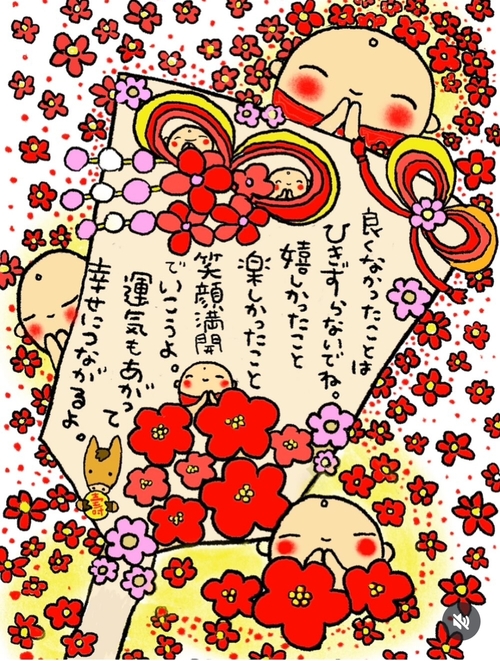 良くなかったことは
ひきずらないでね。
嬉しかったこと
楽しかったこと
笑顔満開
でいこうよ。
運気もあがって
幸せにつながるよ。